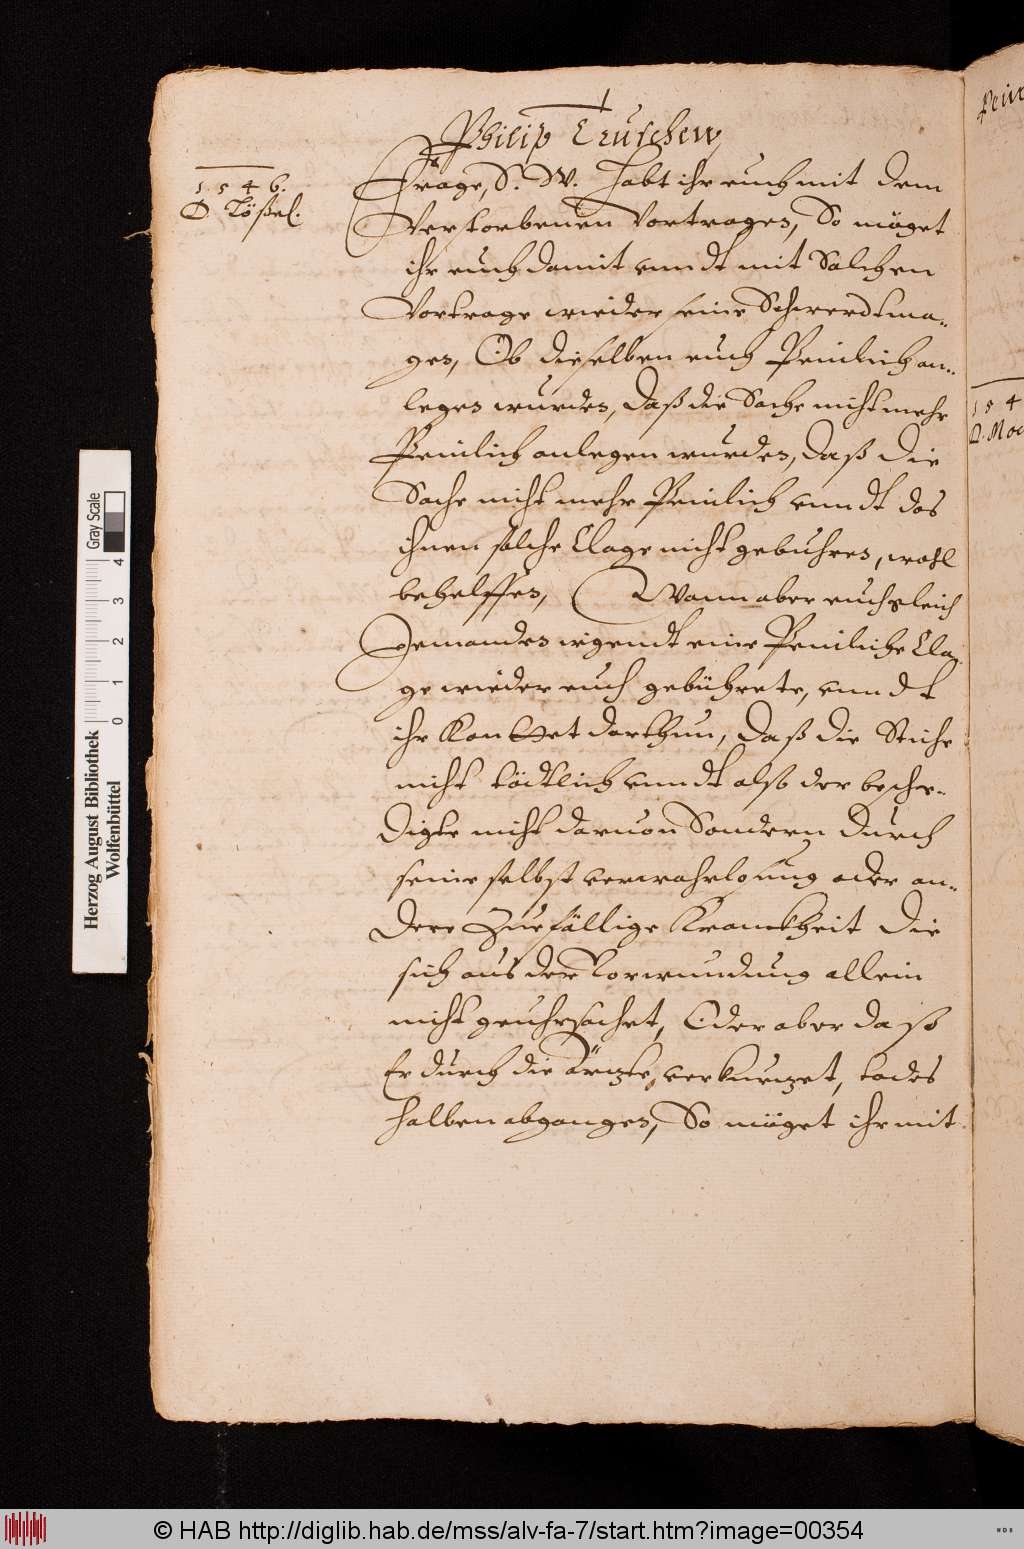 Philip Truschen
1546.
D. Lößel.
Frage, S. W. Habt ihr euch mit dem
Verstorbenen Vortragen, So müget
ihr euch damit vnndt mit Solchen
Vortrage wieder seine Schwerdtma-
gen, Ob dieselben euch Peinlich an-
legen wurden, daß die Sache nicht mehr
Peinlich anlegen wurden, daß die
Sache nicht mehr Peinlich vnndt das
ihnen solche Clage nicht gebuhren, wohl
behelffen, Wann aber euch gleich
Jemandes irgendt eine Peinliche Cla-
ge wieder euch gebührete, vnndt
ihr Konttet darthun, daß die Stiche
nicht tödtlich vnndt also der besche-
digte nicht daruon Sondern durch
seine selbst verwahrlosung oder an-
dere Zuefällige Kranckheit die
sich aus der Vorwundung allein
nicht geuhrsachet, Oder aber da so
Er durch die Ärtzte verkurtzet, todes
halben abgangen, So müget ihr mit
Pein
154
D. Moc
Herzog August Bibliothek
Wolfenbüttel
Gray Scale
0 1 2 3 4
© HAB http://diglib.hab.de/mss/alv-fa-7/start.htm?image=00354